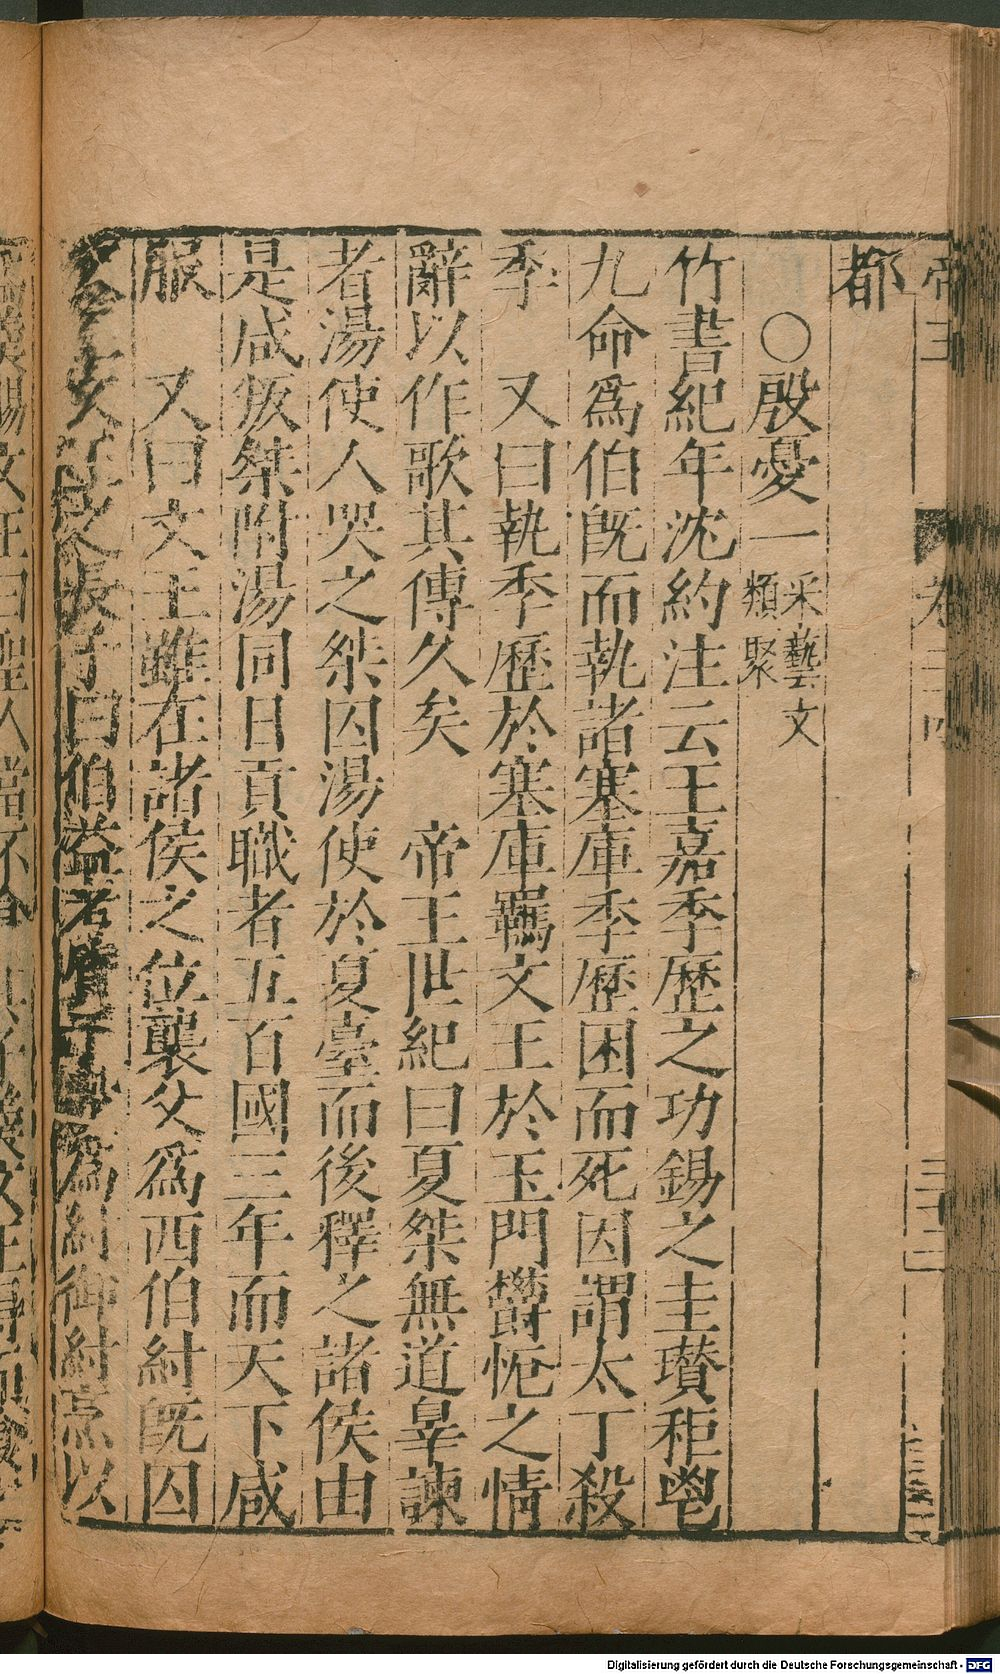 都
○殷憂一 采藝文類聚
竹書紀年沈約注云王嘉季歷之功錫之圭瓚秬鬯
九命爲伯旣而執諸塞庫季歷困而死因謂太丁殺
季 又曰執季歷於塞庫羈文王於玉門鬱怉之情
辭以作歌其傳久矣 帝王世紀曰夏桀無道辠諫
者湯使人哭之桀囚湯使於夏臺而後釋之諸侯由
是咸叛桀附湯同日貢職者五百國三年而天下咸
服 又曰文王雖在諸侯之位襲父爲西伯紂旣囚
文王文王之長子曰伯邑考質於殷爲紂御紂烹以
Digitalisierung gefördert durch die Deutsche Forschungsgemeinschaft - DFG